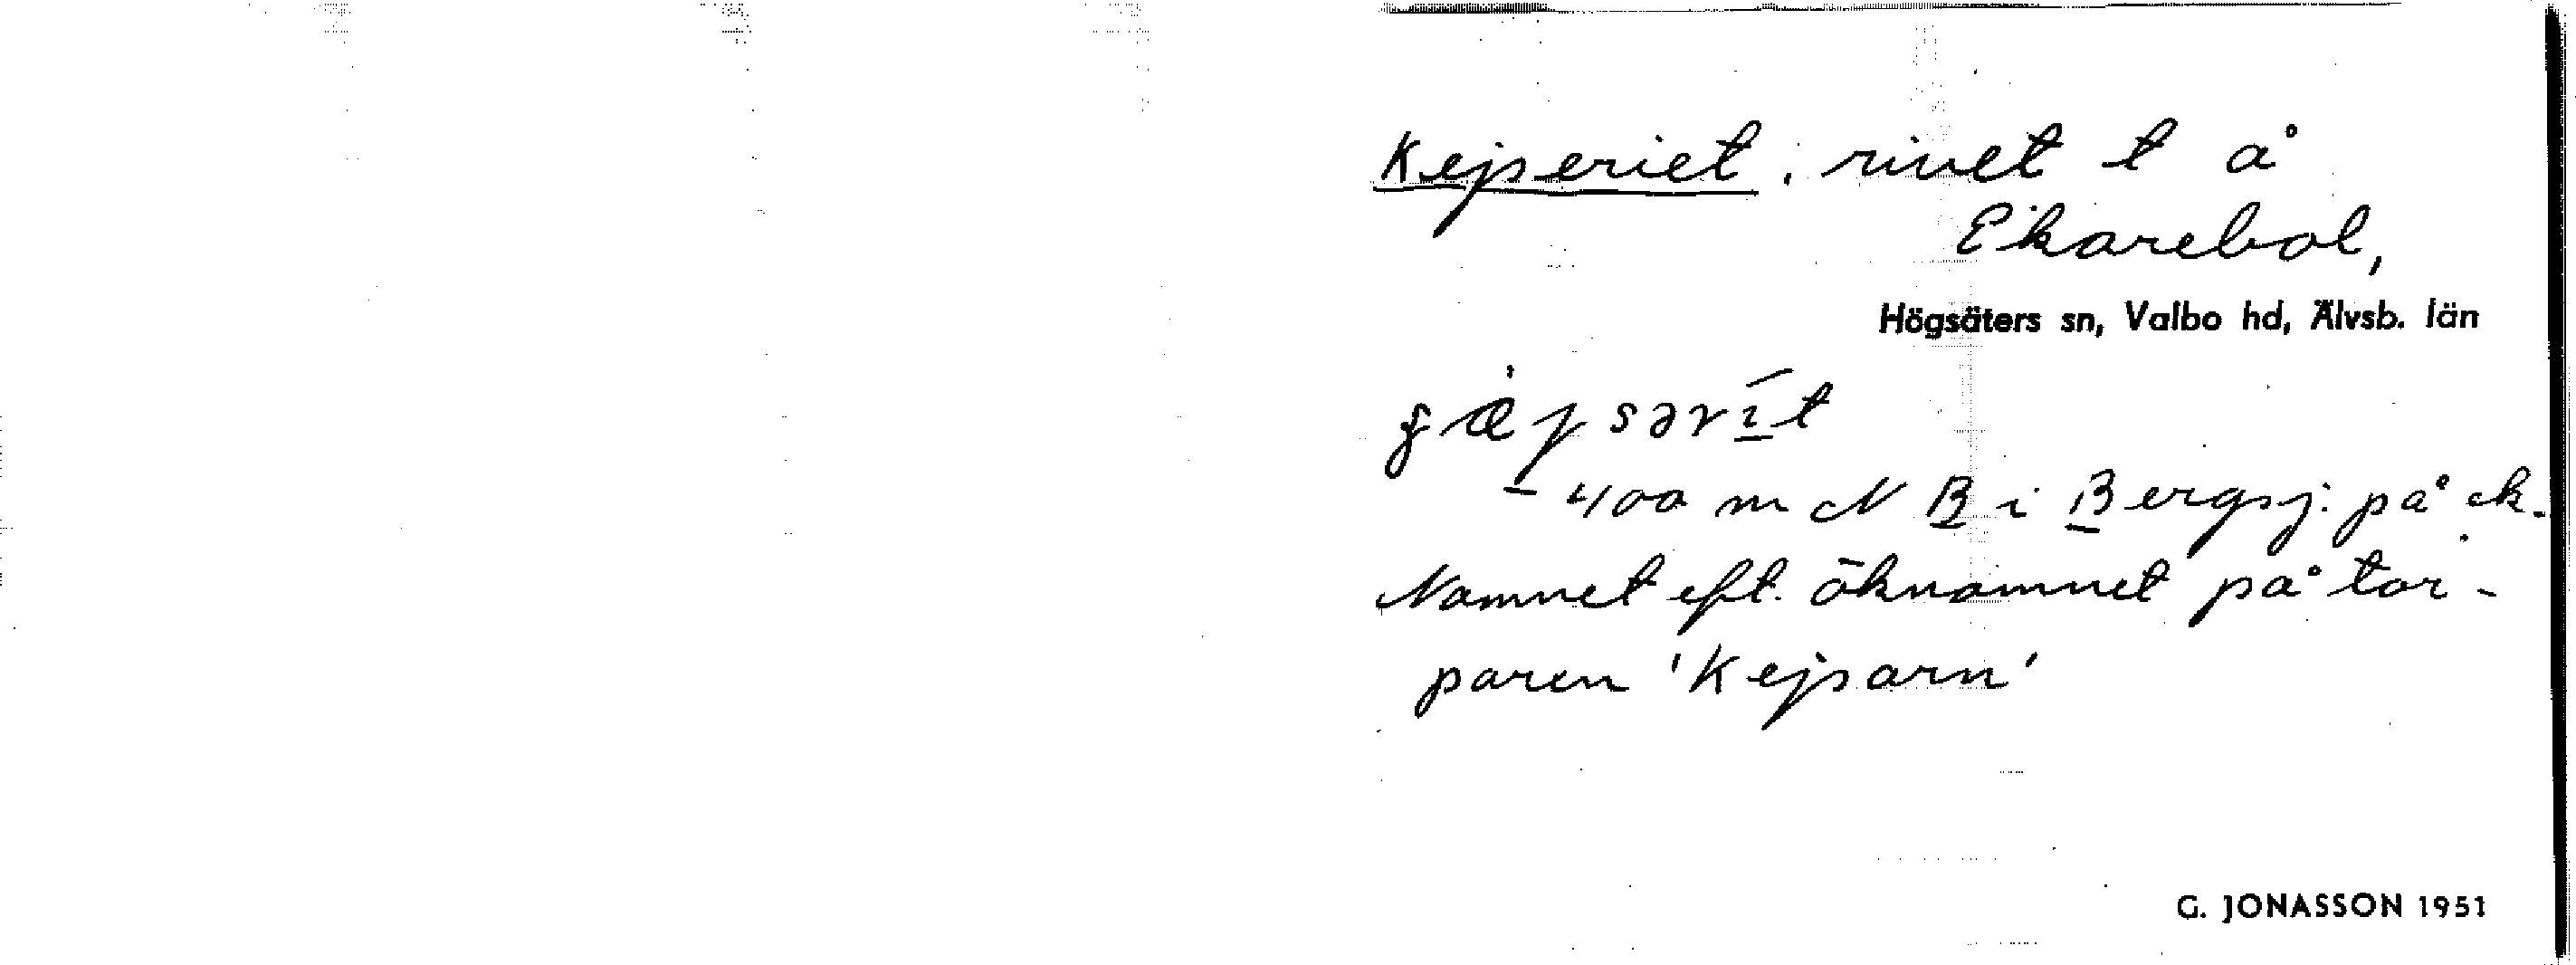 Kejseriet, rivet t å
Ekarebol,
Högsäters sn, Valbo hd, Älvsb. län
400 m N B i Bergsj. på ek.
Namnet eft. öknamnet på tor-
paren 'Kejsarn'
G. JONASSON 1951